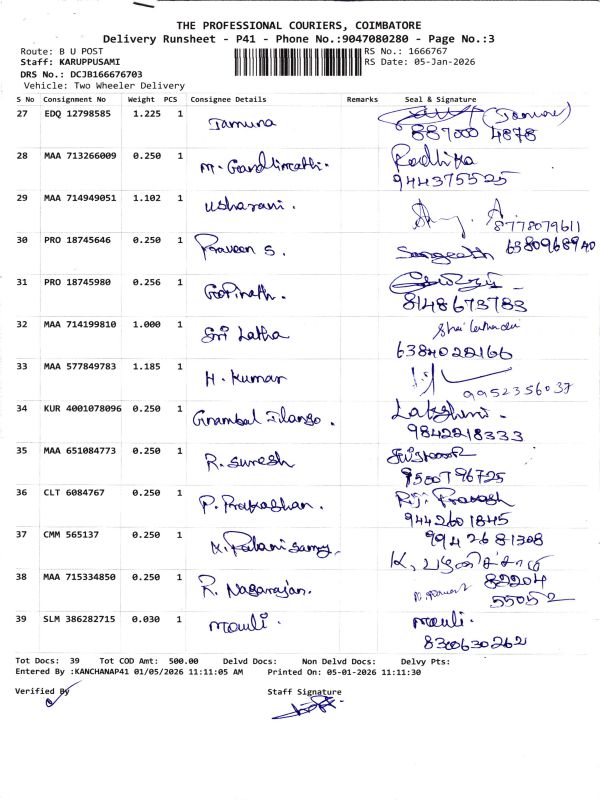 THE PROFESSIONAL COURIERS, COIMBATORE
Delivery Runsheet - P41 - Phone No.:9047080280 - Page No.:3
Route: B U POST RS No.: 1666767
Staff: KARUPPUSAMI RS Date: 05-Jan-2026
DRS No.: DCJB166676703
Vehicle: Two Wheeler Delivery
S No Consignment No Weight PCS Consignee Details Remarks Seal & Signature
27 EDQ 12798585 1.225 1 Jamuna (Jamuna)
887000 4878
28 MAA 713266009 0.250 1 M. Gandhimathi. Radhika
9443755525
29 MAA 714949051 1.102 1 Usharani.
8778079611
30 PRO 18745646 0.250 1 Praveen S. Sangeeth 6380968940
31 PRO 18745980 0.256 1 Gopinath.
8148673783
32 MAA 714199810 1.000 1 Sri Latha
6384028166
33 MAA 577849783 1.185 1 H. Kumar
9952356037
34 KUR 4001078096 0.250 1 Gnambal Ilango. Lakshmi.
9842218333
35 MAA 651084773 0.250 1 R. Suresh
9500796725
36 CLT 6084767 0.250 1 P. Prakashan. P.J. Prakash
9442601845
37 CMM 565137 0.250 1 K. Palanisamy. 9942681308
K. பழனிச்சாமி
38 MAA 715334850 0.250 1 R. Nagarajan. 82204
55052
39 SLM 386282715 0.030 1 Mouli. Mouli.
8300630262
Tot Docs: 39 Tot COD Amt: 500.00 Delvd Docs: Non Delvd Docs: Delvy Pts:
Entered By :KANCHANAP41 01/05/2026 11:11:05 AM Printed On: 05-01-2026 11:11:30
Verified By Staff Signature